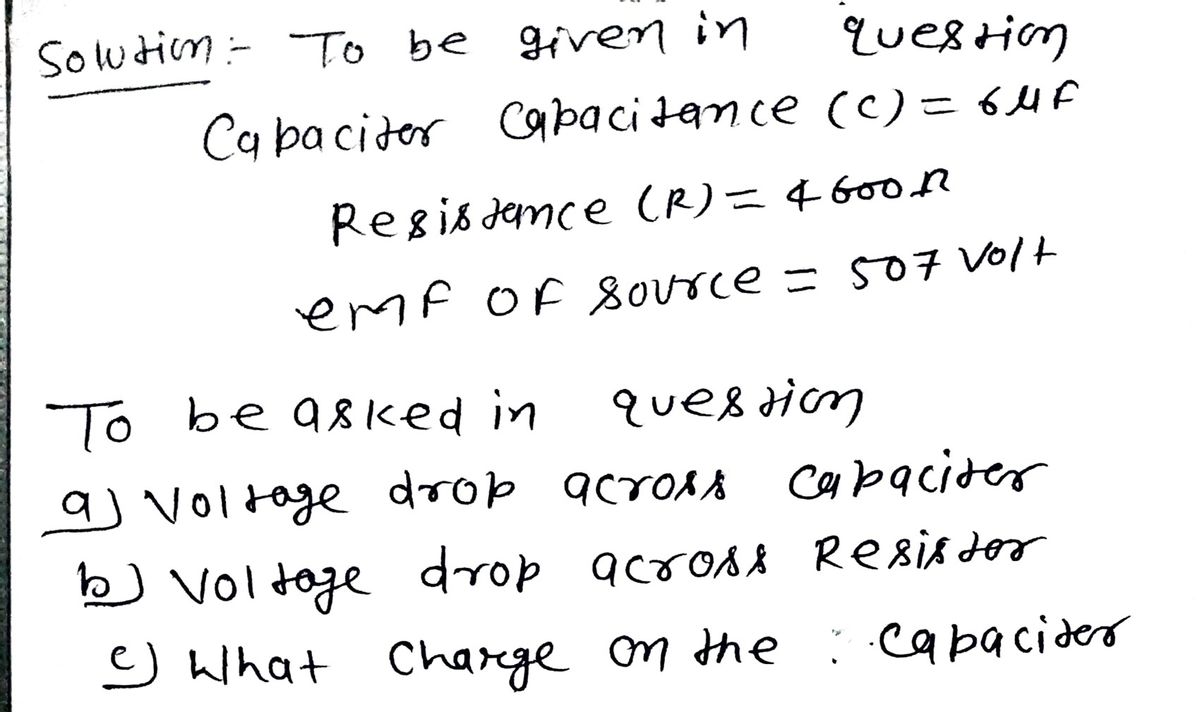 Solution :- To be given in question
Capacitor Capacitance (C) = 6 μF
Resistance (R) = 4600 Ω
emf of source = 507 Volt
To be asked in question
a) Voltage drop across capacitor
b) Voltage drop across Resistor
c) What Charge on the : capacitor